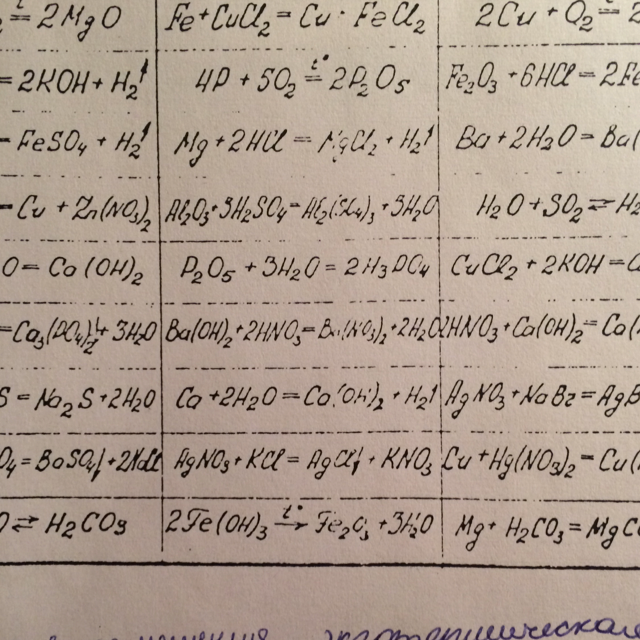 = 2MgO Fe + CuCl₂ = Cu + FeCl₂ 2Cu + O₂ =
= 2KOH + H₂↑ 4P + 5O₂ =t° 2P₂O₅ Fe₂O₃ + 6HCl = 2Fe
= FeSO₄ + H₂↑ Mg + 2HCl = MgCl₂ + H₂↑ Ba + 2H₂O = Ba(
= Cu + Zn(NO₃)₂ Al₂O₃ + 3H₂SO₄ = Al₂(SO₄)₃ + 3H₂O H₂O + SO₂ ⇄ H₂
O = Ca(OH)₂ P₂O₅ + 3H₂O = 2H₃PO₄ CuCl₂ + 2KOH =
= Ca₃(PO₄)₂↓ + 3H₂O Ba(OH)₂ + 2HNO₃ = Ba(NO₃)₂ + 2H₂O 2HNO₃ + Ca(OH)₂ = Ca(
S = Na₂S + 2H₂O Ca + 2H₂O = Ca(OH)₂ + H₂↑ AgNO₃ + NaBr = AgB
O₄ = BaSO₄↓ + 2NaCl AgNO₃ + KCl = AgCl↓ + KNO₃ Cu + Hg(NO₃)₂ = Cu(
O ⇄ H₂CO₃ 2Fe(OH)₃ t°→ Fe₂O₃ + 3H₂O Mg + H₂CO₃ = MgC